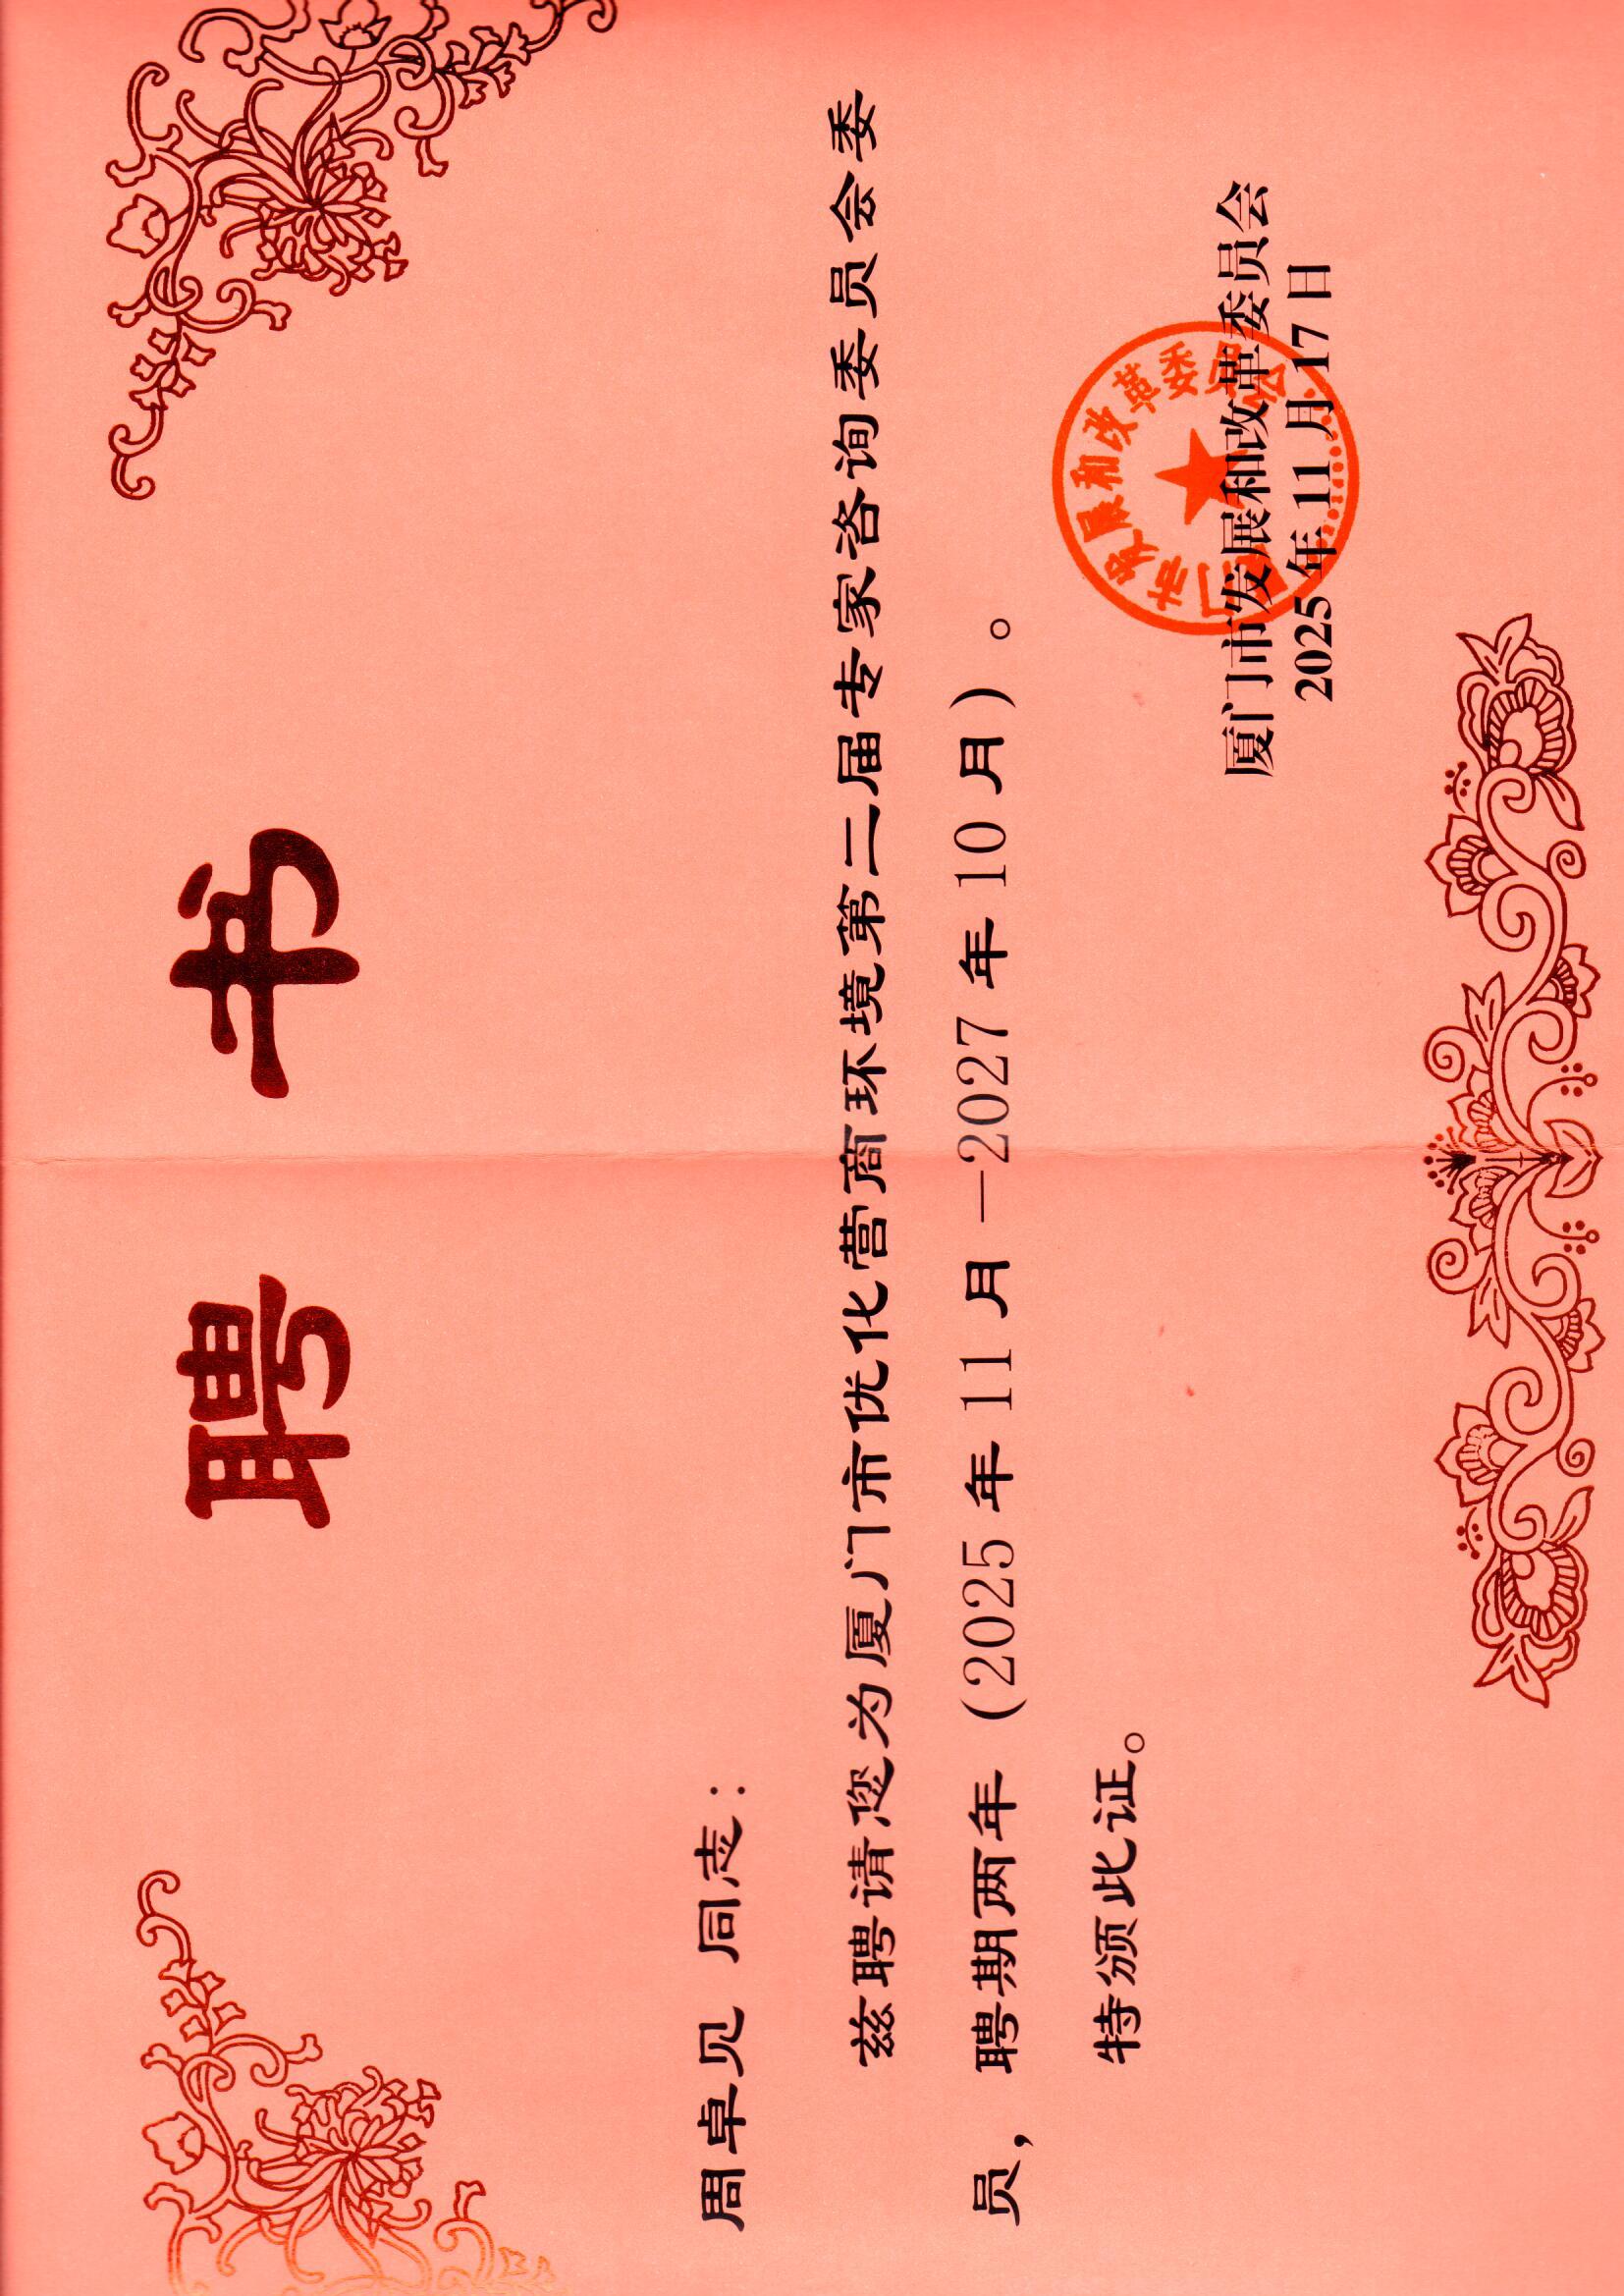 聘 书
周卓见 同志：
兹聘请您为厦门市优化营商环境第二届专家咨询委员会委
员，聘期两年（2025年11月—2027年10月）。
特颁此证。
厦门市发展和改革委员会
2025年11月17日
厦门市发展和改革委员会